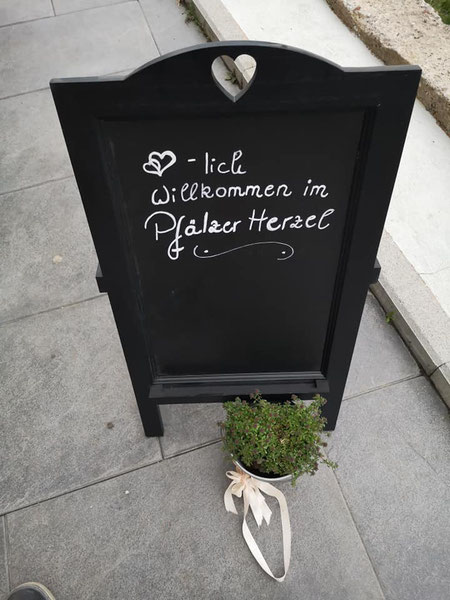 ♡-lich
Willkommen im
Pfälzer Herzel